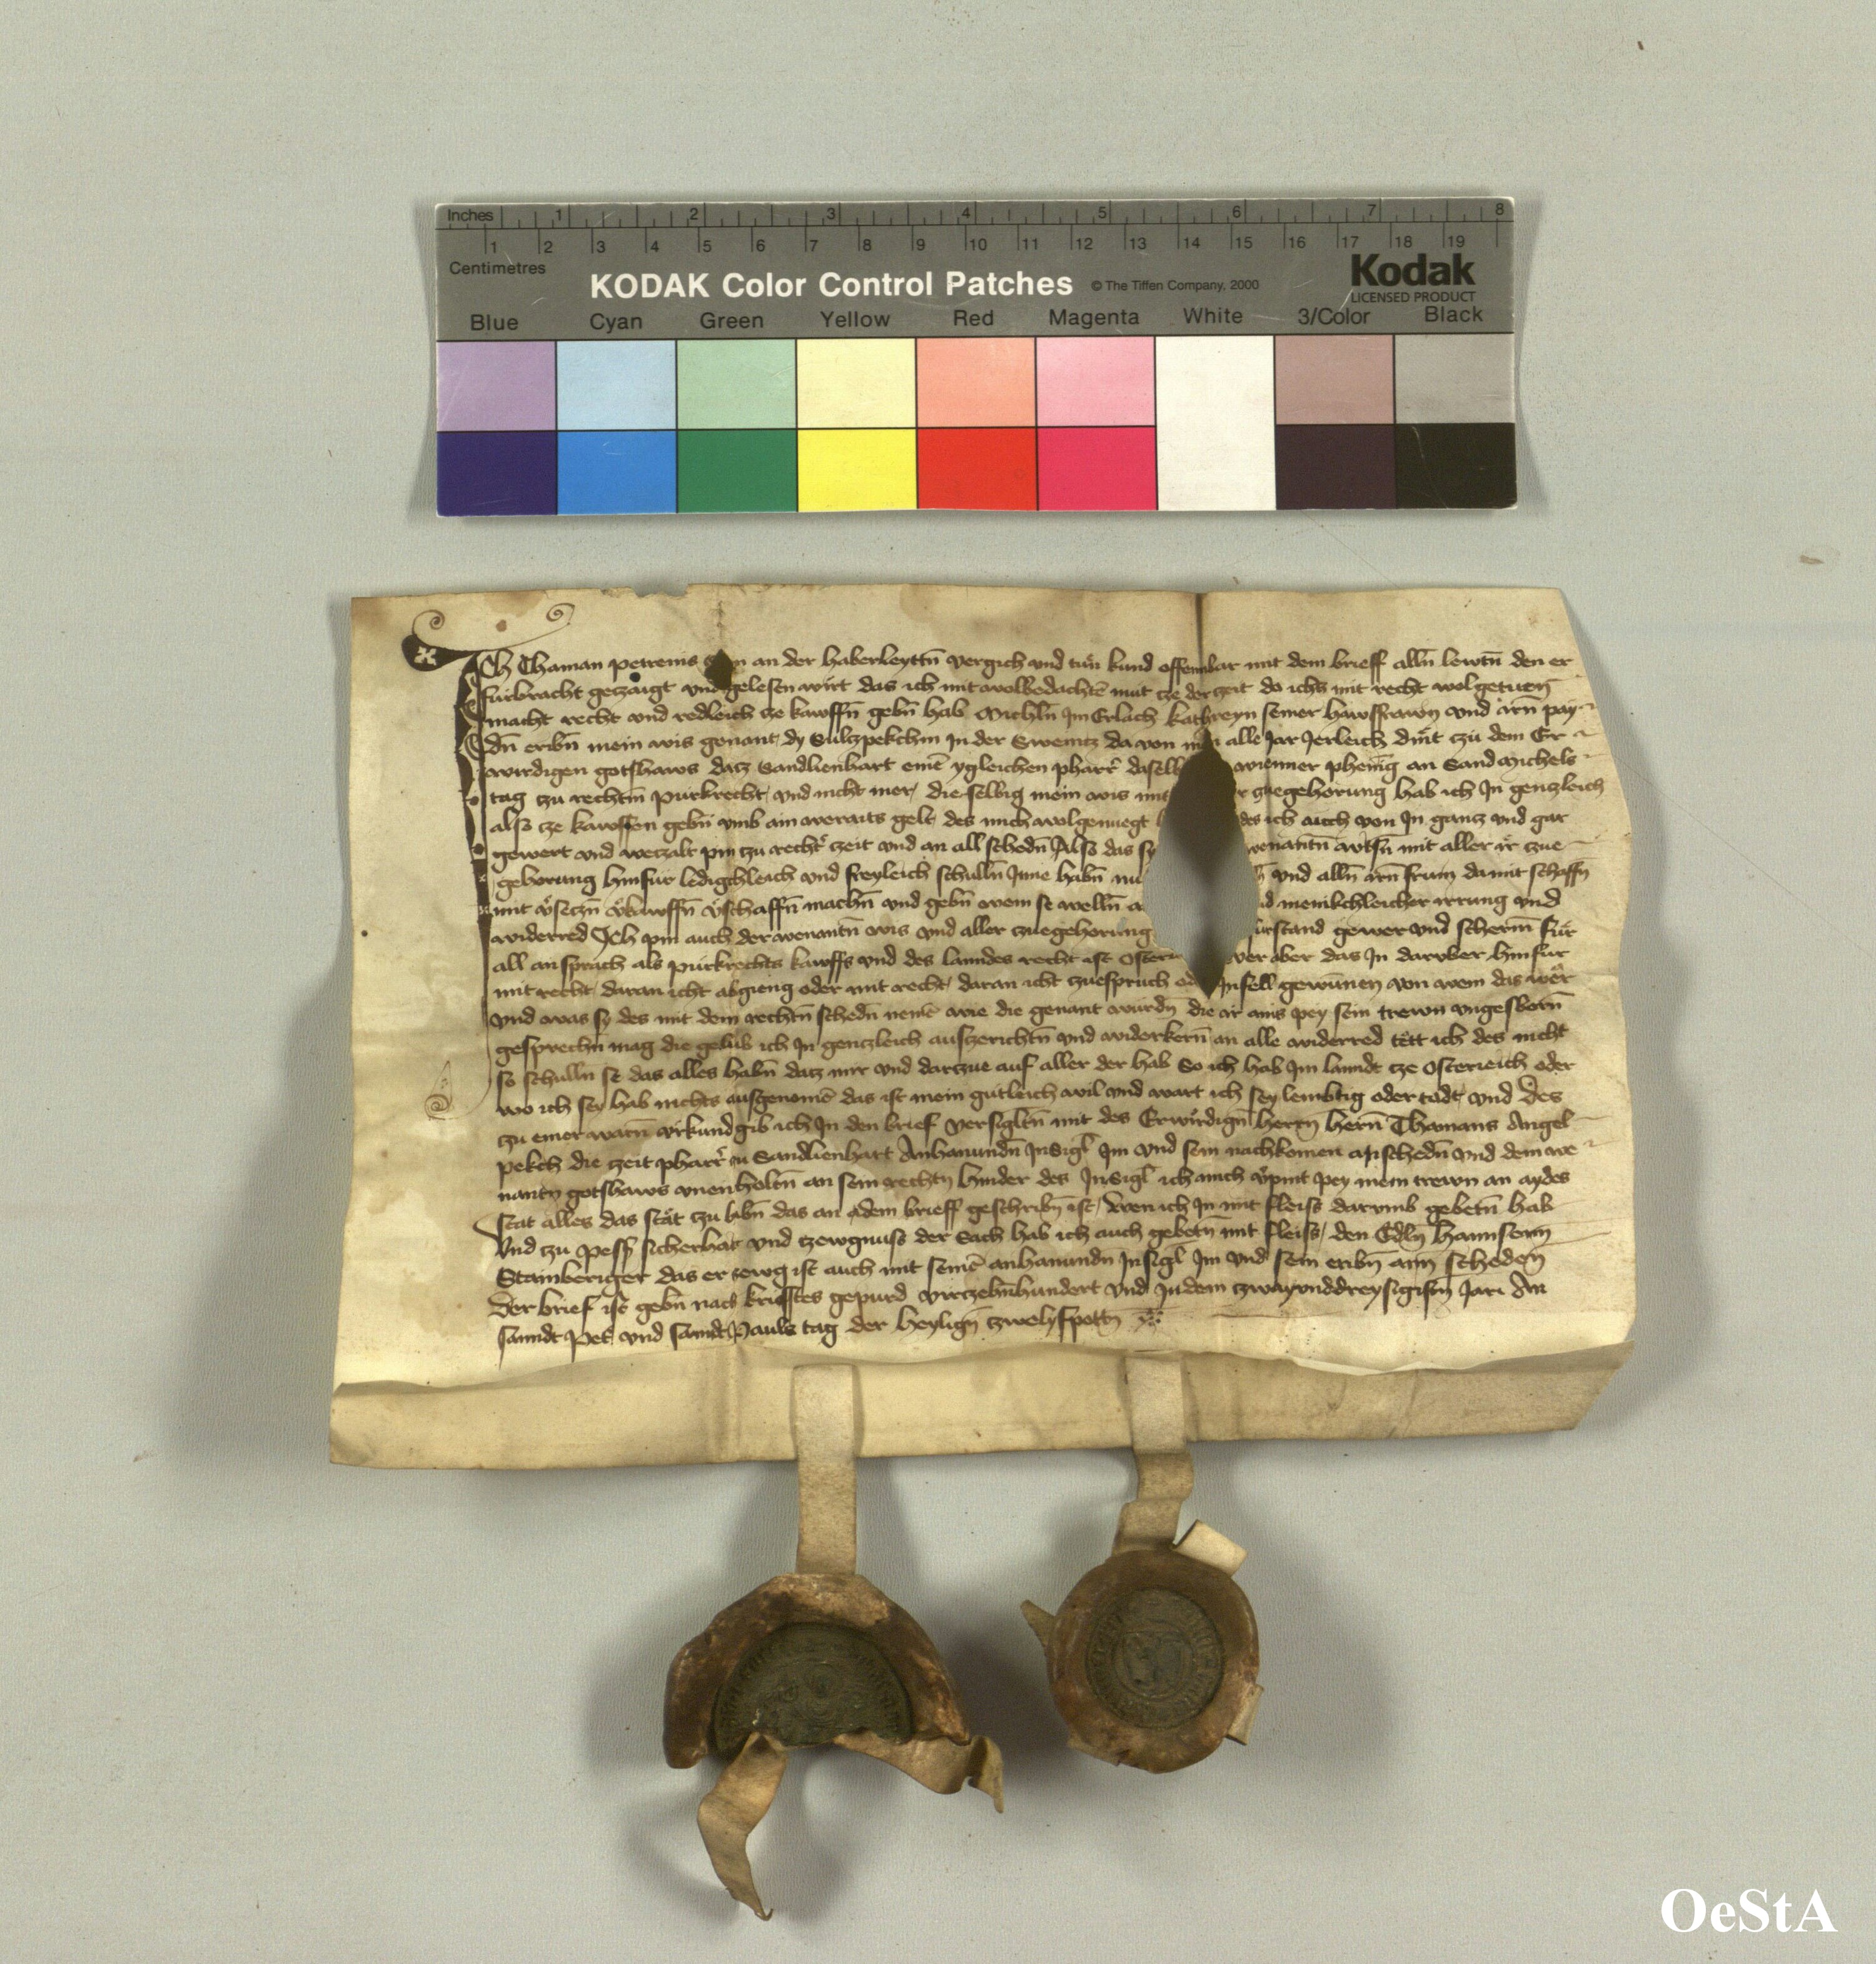 Inches 1 2 3 4 5 6 7 8
1 2 3 4 5 6 7 8 9 10 11 12 13 14 15 16 17 18 19
Centimetres
KODAK Color Control Patches © The Tiffen Company, 2000 Kodak
LICENSED PRODUCT
Blue Cyan Green Yellow Red Magenta White 3/Color Black
Ich Thaman petreins an der haberleyttn̄ vergich vnd tun kund offennbar mit dem brieff alln̄ lewtn̄ den er
furbracht geczaigt vnd gelesen wirt das ich mit wolbedachtē mut cze der czeit do ichs mit recht wol getuen
macht recht vnd redleich cze kawffn̄ gebn̄ hab Michln̄ Im Erlach kathreyn seiner hawsfrawn vnd irn̄ pay
dn̄ eribn̄ mein wis genant dy Sultzpekchin In der Sweintz da von man alle Jar Jerleich dint czu dem Er
wirdigen gotshaws datz Sandlienhart einē ygleichen pharr̄ dasell wienner phenig an Sand Michels
tag czu rechtm̄ purkrecht vnd nicht mer die selbig mein wis mit czuegehorung hab ich In genczleich
also cze kawffen gebn̄ vmb ain werats gelt des mich wol genuegt des ich auch von In gancz vnd gar
gewert vnd peczalt pin czu rechtr̄ czeit vnd an all schedn̄ Also das sy wenantn̄ wisn̄ mit aller ir czue
gehorung hinfur ledigchleich vnd freyleich schulln̄ Inne habn̄ vnd alln̄ irn̄ frum damit schaffn̄
mit v̄seczn̄ v̄kawffn̄ v̄schaffn̄ machn̄ vnd gebn̄ wem se welln̄ menikchleicher irrung vnd
widerred Ich pin auch der wenantn̄ wis vnd aller czuegehorung furstand gewer vnd scherm̄ fur
all ansprach als purkrechts kawffs vnd des lanndes recht ist wer aber das In daruber hinfur
mit recht daran icht abgieng oder mit recht daran icht czuespruch Infell gewunnen von wem das wer
vnd was sy des mit dem rechtn̄ schedn̄ nemē wie die genant wurdn̄ die ir ains pey sein trewn vngesborn̄
gesprechn mag die gelub ich In genczleich auszerichtn̄ vnd widerkern̄ an alle widerred tett ich des nicht
so schulln se das alles habn̄ datz mir vnd darczue auf aller der hab So ich hab Im lanndt cze Osterreich oder
wo ich sey hab nichts ausgenomē das ist mein gutleich wil vnd wart ich sey lembtig oder todt vnd Des
czu einer warn̄ vrkund gib ich In den brief versigltn̄ mit des Erwirdign̄ herrn hern̄ Thamans Angel
pekch die czeit pharr̄ cu Sandlienhart Anhanundn̄ Insigl Im vnd sein nachkomen an schedn̄ vnd dem we
nantn gotshaws vnenholtn̄ an sein rechtn hinder des Insigl ich mich v̄pint pey mein trewn an aydes
stat alles das stat czu habn̄ das an dem brieff geschribn̄ ist wen ich In mit fleiss darumb gebetn̄ hab
Vnd czu pess̄ sicherhat vnd czewgnuss der Sach hab ich auch gebetn̄ mit fleiss den Edln̄ hannsenn
Stainberiger das er czewg ist auch mit seinē anhanundn Insigl Im vnd sein eribn̄ ann scheden
Der brief ist gebn̄ nach kristes gepurd virczehnhundert vnd Indem czwayvnddreysigistn̄ Jari An
sanndt Pet̄ vnd sanndt Pauls tag der heylign̄ czwelfpottn
OeStA